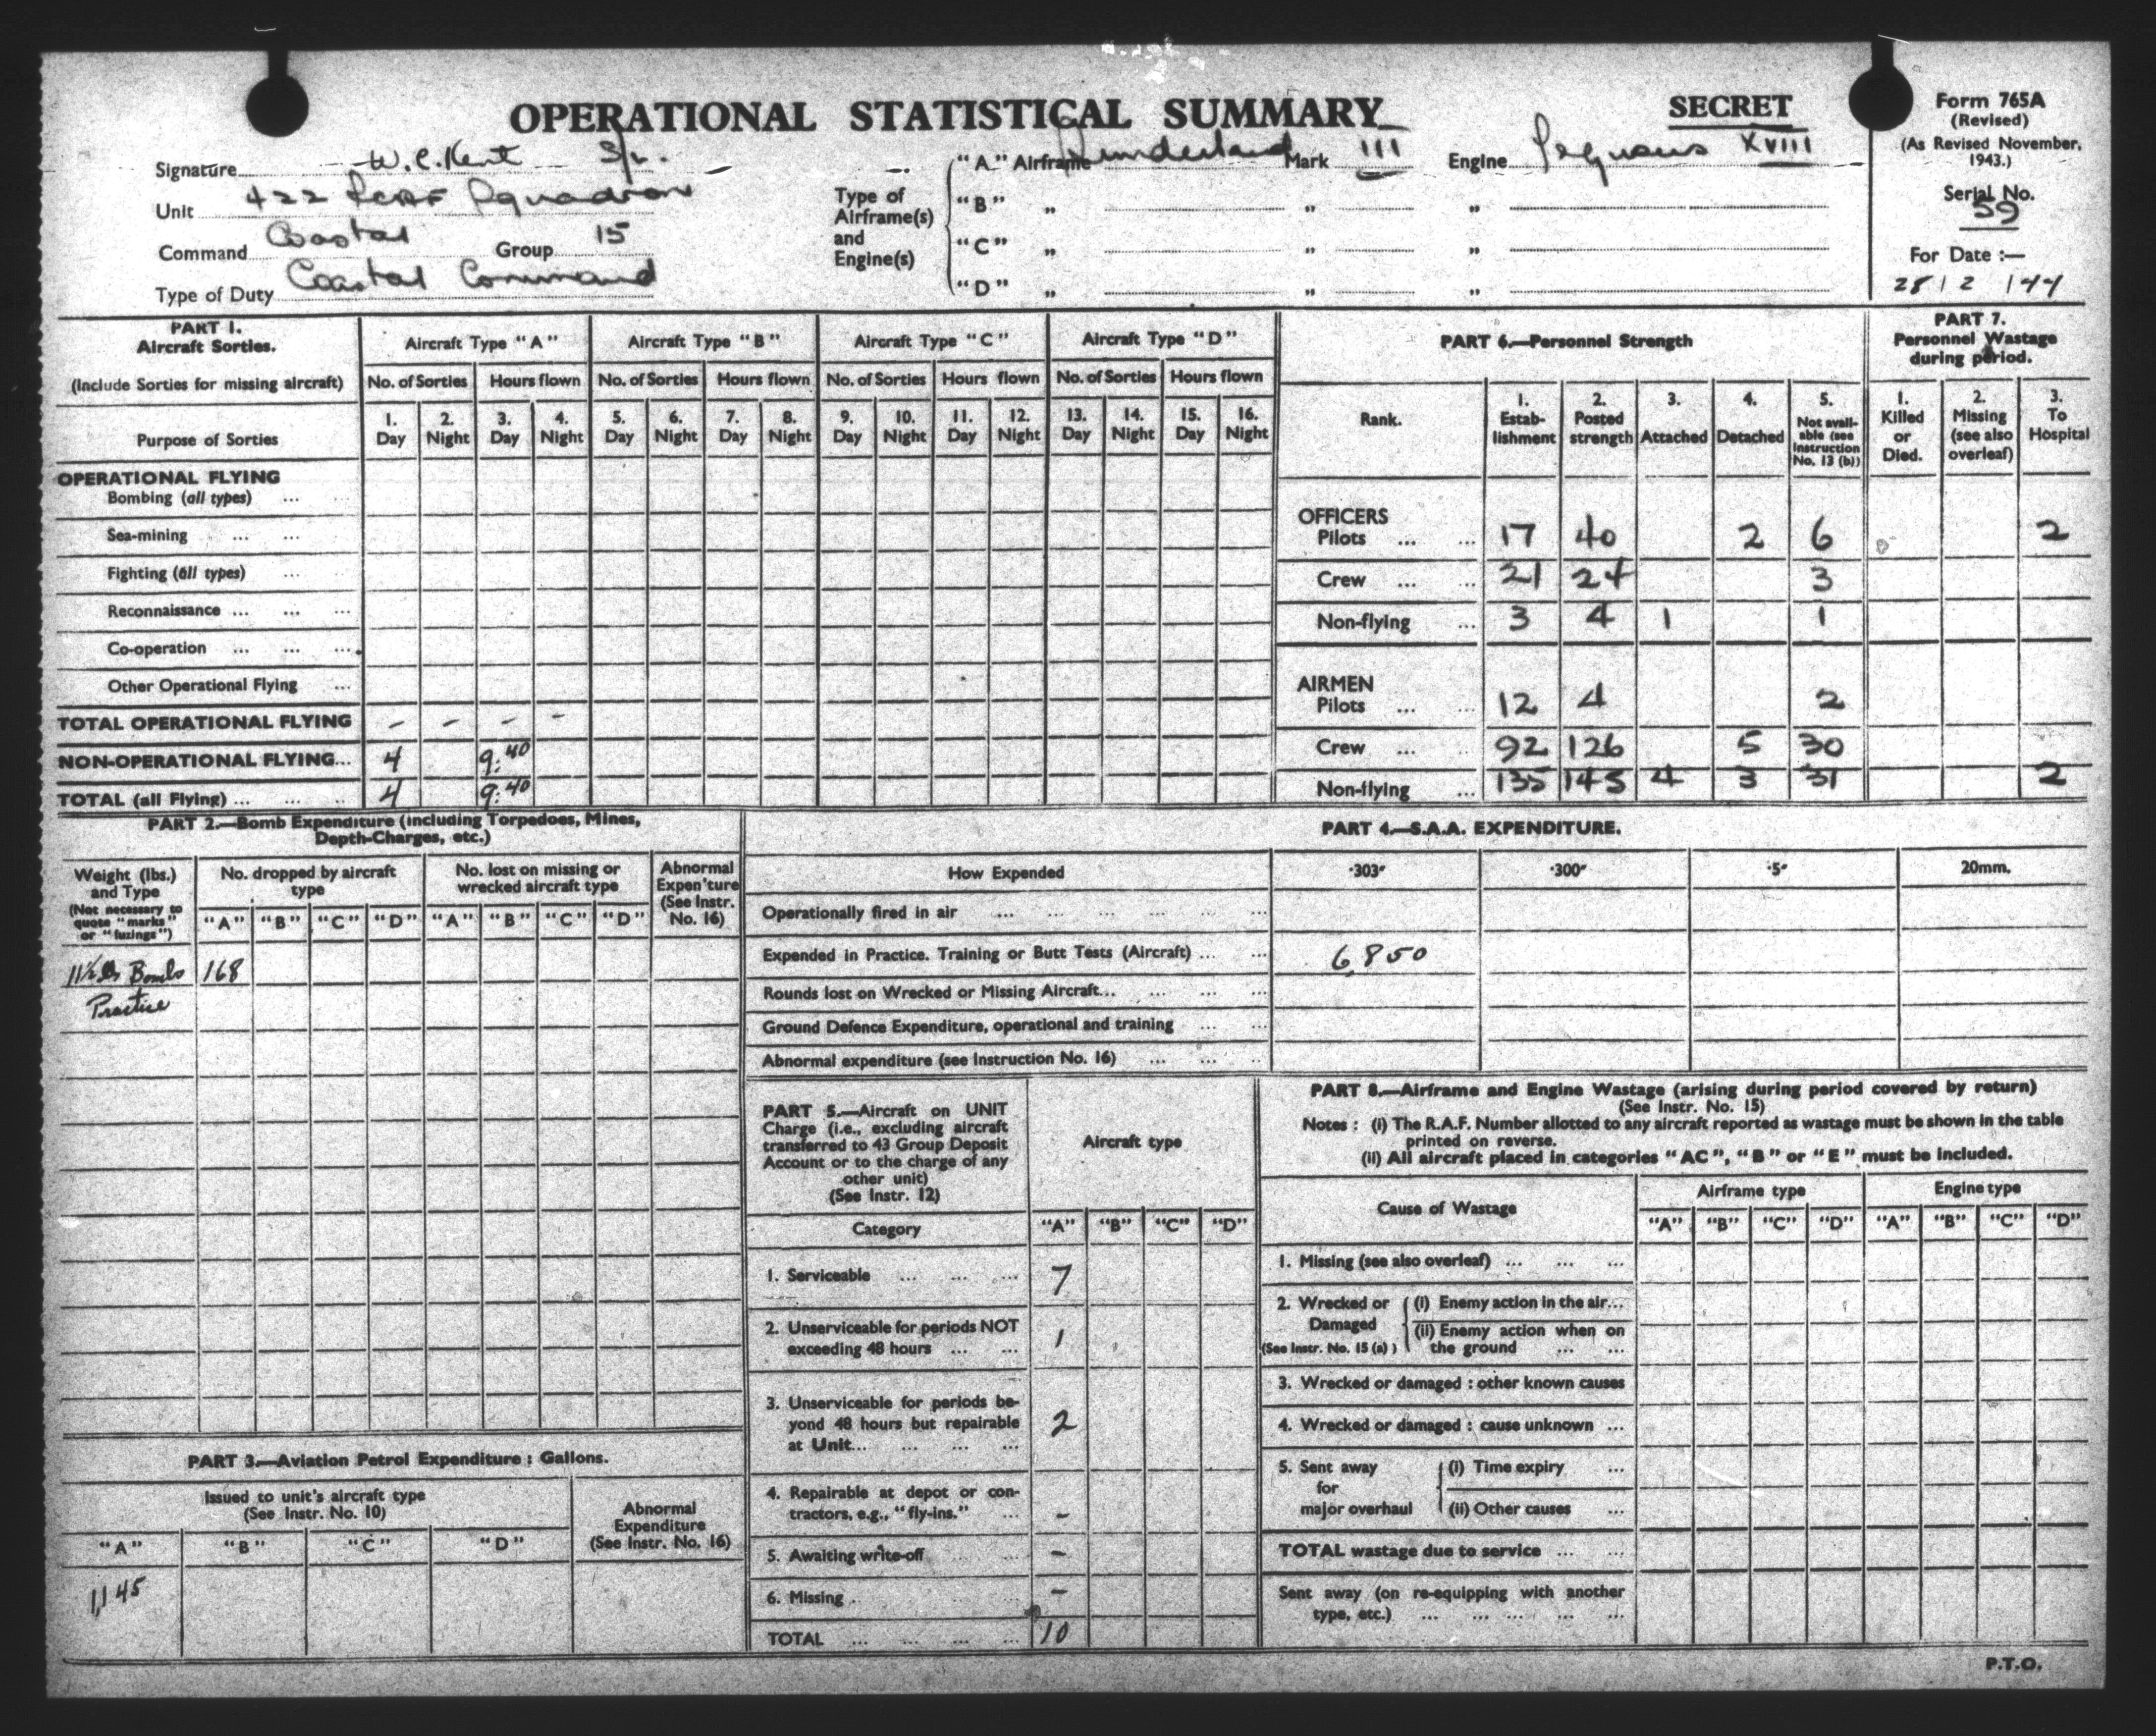 OPERATIONAL STATISTICAL SUMMARY
SECRET
Form 765A
(Revised)
(As Revised November, 1943.)
Serial No.
59
For Date :—
28 / 2 / 44
Signature W.C. Kent S/L.
Unit 422 RCAF Squadron
Command Coastal Group 15
Type of Duty Coastal Command
Type of Airframe(s) and Engine(s)
"A" Airframe Sunderland Mark III Engine Pegasus XVIII
"B" " " "
"C" " " "
"D" " " "
PART 1.
Aircraft Sorties.
(Include Sorties for missing aircraft)
Purpose of Sorties
Aircraft Type "A" Aircraft Type "B" Aircraft Type "C" Aircraft Type "D"
No. of Sorties Hours flown No. of Sorties Hours flown No. of Sorties Hours flown No. of Sorties Hours flown
1. 2. 3. 4. 5. 6. 7. 8. 9. 10. 11. 12. 13. 14. 15. 16.
Day Night Day Night Day Night Day Night Day Night Day Night Day Night Day Night
OPERATIONAL FLYING
Bombing (all types) ...
Sea-mining ... ...
Fighting (all types) ...
Reconnaissance ... ... ...
Co-operation ... ... ...
Other Operational Flying ...
TOTAL OPERATIONAL FLYING - - - -
NON-OPERATIONAL FLYING... 4 9:40
TOTAL (all Flying) ... ... ... 4 9:40
PART 6.—Personnel Strength
Rank.
1. Estab-lishment
2. Posted strength
3. Attached
4. Detached
5. Not avail-able (see Instruction No. 13 (b))
PART 7.
Personnel Wastage during period.
1. Killed or Died.
2. Missing (see also overleaf)
3. To Hospital
OFFICERS
Pilots ... ... 17 40 2 6 2
Crew ... ... 21 24 3
Non-flying ... 3 4 1 1
AIRMEN
Pilots ... ... 12 4 2
Crew ... ... 92 126 5 30
Non-flying ... 135 145 4 3 31 2
PART 2.—Bomb Expenditure (including Torpedoes, Mines,
Depth-Charges, etc.)
Weight (lbs.) and Type
(Not necessary to quote "marks" or "fuzings")
No. dropped by aircraft type
No. lost on missing or wrecked aircraft type
Abnormal Expen'ture (See Instr. No. 16)
"A" "B" "C" "D" "A" "B" "C" "D"
11½ lb Bombs 168
Practice
PART 4.—S.A.A. EXPENDITURE.
How Expended ·303" ·300" ·5" 20mm.
Operationally fired in air ... ... ... ... ... ...
Expended in Practice. Training or Butt Tests (Aircraft) ... ... 6,850
Rounds lost on Wrecked or Missing Aircraft... ... ... ...
Ground Defence Expenditure, operational and training ... ...
Abnormal expenditure (see Instruction No. 16) ... ... ...
PART 3.—Aviation Petrol Expenditure : Gallons.
Issued to unit's aircraft type
(See Instr. No. 10)
Abnormal Expenditure
(See Instr. No. 16)
"A" "B" "C" "D"
1,145
PART 5.—Aircraft on UNIT
Charge (i.e., excluding aircraft
transferred to 43 Group Deposit
Account or to the charge of any
other unit)
(See Instr. 12)
Aircraft type
Category "A" "B" "C" "D"
1. Serviceable ... ... ... 7
2. Unserviceable for periods NOT
exceeding 48 hours ... ... 1
3. Unserviceable for periods be-
yond 48 hours but repairable
at Unit... ... ... ... 2
4. Repairable at depot or con-
tractors, e.g., "fly-ins." ... -
5. Awaiting write-off -
6. Missing -
TOTAL ... ... ... ... 10
PART 8.—Airframe and Engine Wastage (arising during period covered by return)
(See Instr. No. 15)
Notes : (i) The R.A.F. Number allotted to any aircraft reported as wastage must be shown in the table
printed on reverse.
(ii) All aircraft placed in categories "AC", "B" or "E" must be included.
Cause of Wastage Airframe type Engine type
"A" "B" "C" "D" "A" "B" "C" "D"
1. Missing (see also overleaf) ... ... ...
2. Wrecked or Damaged
(See Instr. No. 15 (a) )
(i) Enemy action in the air...
(ii) Enemy action when on
the ground ... ...
3. Wrecked or damaged : other known causes
4. Wrecked or damaged : cause unknown ...
5. Sent away for major overhaul
(i) Time expiry ...
(ii) Other causes ...
TOTAL wastage due to service ... ...
Sent away (on re-equipping with another
type, etc.) ... ... ... ... ...
P.T.O.